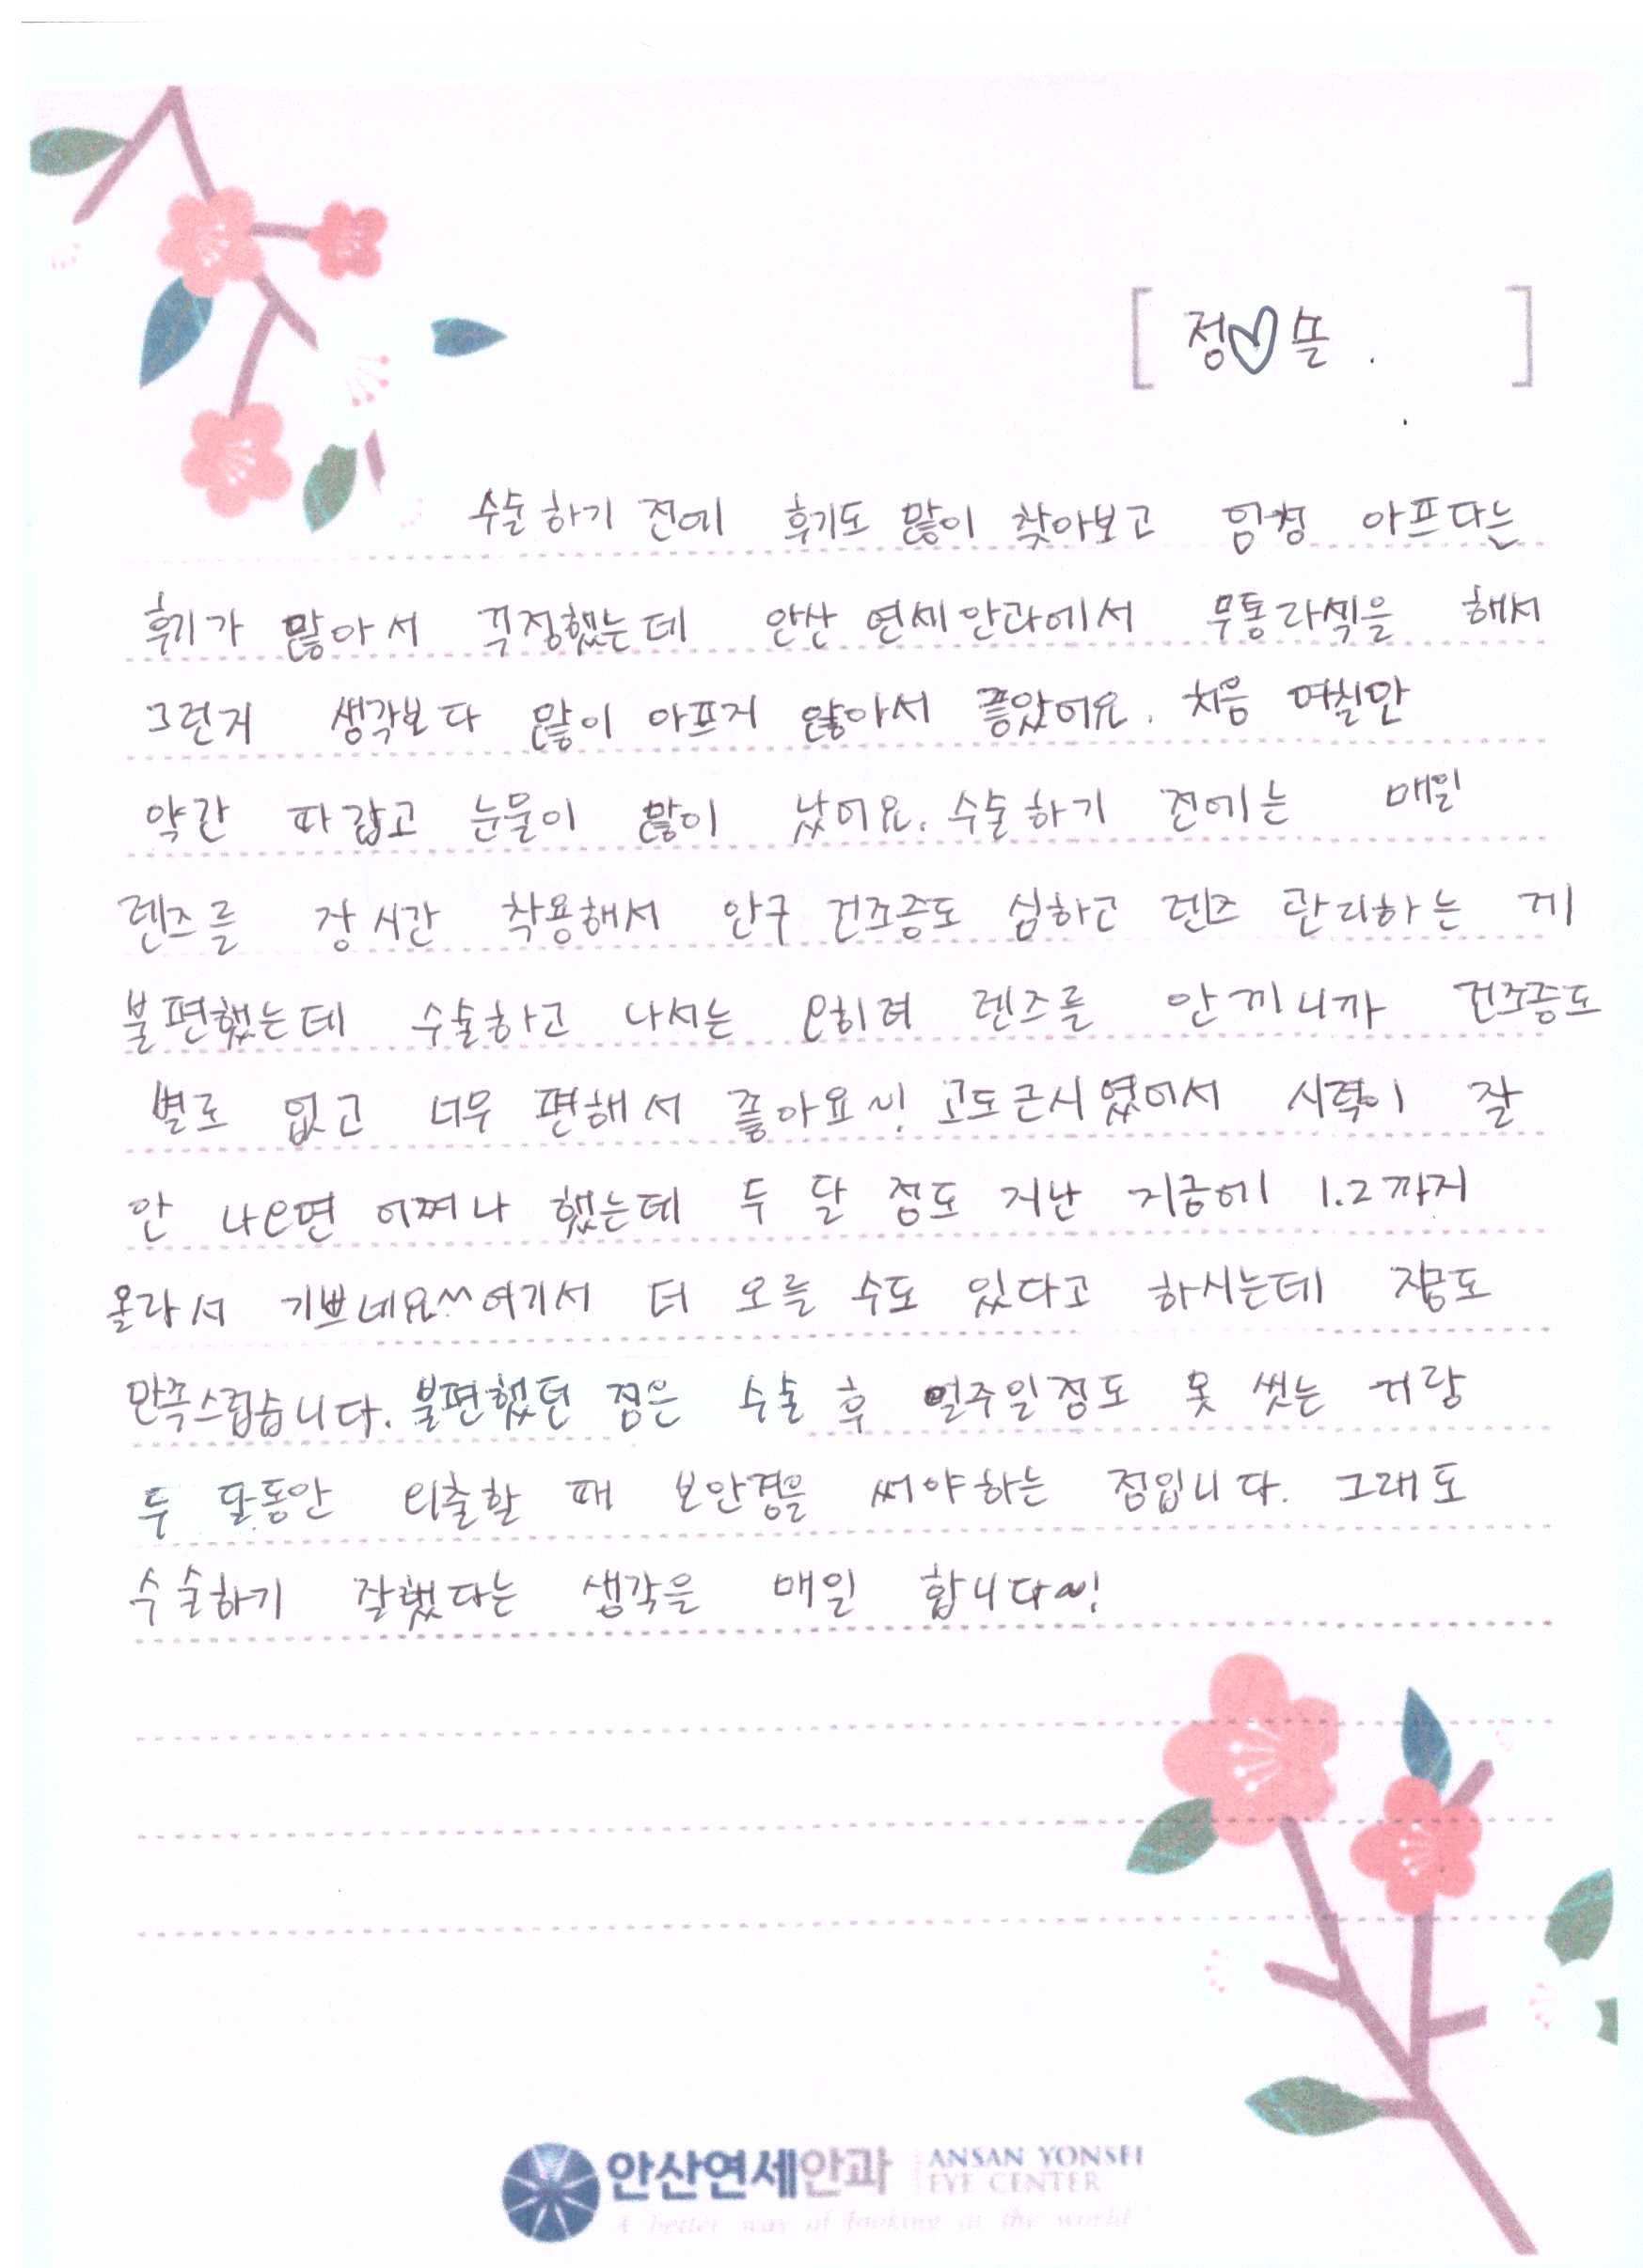 [ 정♡슬 . ]
수술하기 전에 후기도 많이 찾아보고 엄청 아프다는
후기가 많아서 걱정했는데 안산 연세안과에서 무통라섹을 해서
그런지 생각보다 많이 아프지 않아서 좋았어요. 처음 며칠만
약간 따갑고 눈물이 많이 났어요. 수술하기 전에는 매일
렌즈를 장시간 착용해서 안구 건조증도 심하고 렌즈 관리하는 게
불편했는데 수술하고 나서는 오히려 렌즈를 안끼니까 건조증도
별로 없고 너무 편해서 좋아요~! 고도근시였어서 시력이 잘
안 나오면 어쩌나 했는데 두 달 정도 지난 지금에 1.2까지
올라서 기쁘네요^^여기서 더 오를 수도 있다고 하시는데 지금도
만족스럽습니다. 불편했던 점은 수술 후 일주일정도 못 씻는 거랑
두 달동안 외출할 때 보안경을 써야하는 점입니다. 그래도
수술하기 잘했다는 생각을 매일 합니다~!
안산연세안과 ANSAN YONSEI
EYE CENTER
A better way of looking at the world